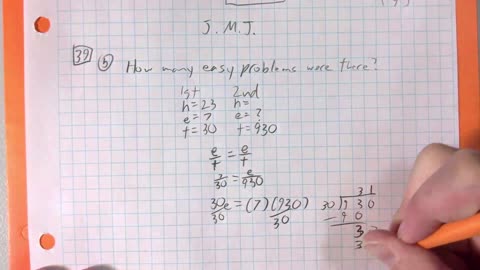 J. M. J.
39 5 How many easy problems were there?
1st 2nd
h = 23 h =
e = 7 e = ?
t = 30 t = 930
e/t = e/t
7/30 = e/930
30e/30 = (7)(930)/30
31
30 930
- 90
3
3